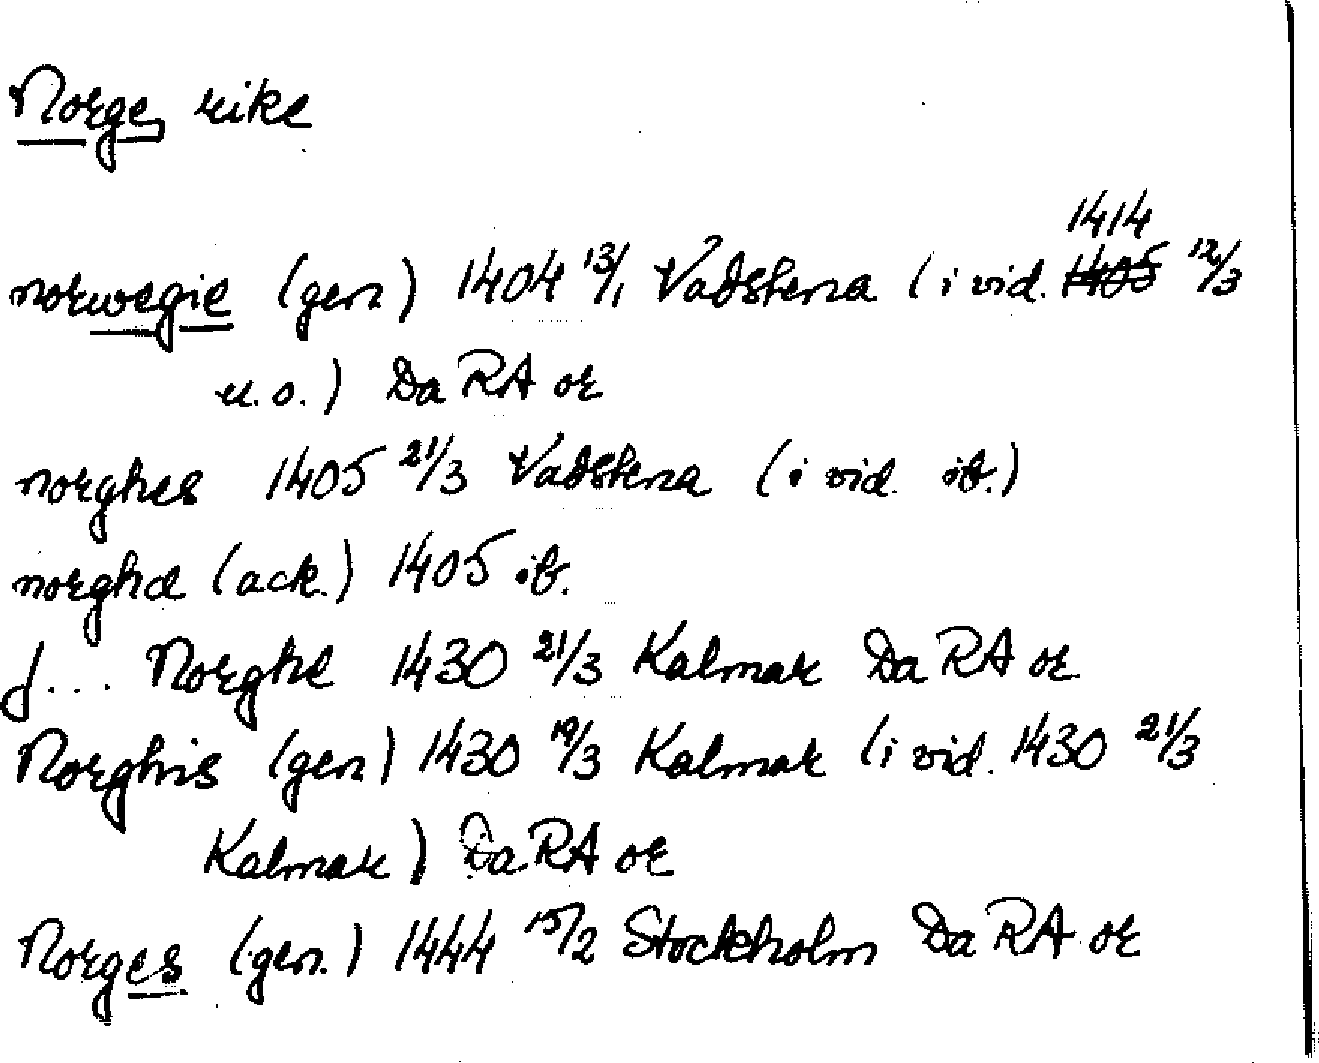 Norge, rike
norwegie (gen) 1404 13/1 Vadstena (i vid. 1414 1405 12/3
u.o.) Da RA or
norghes 1405 21/3 Vadstena (i vid. ib.)
norghæ (ack.) 1405 ib.
J... Norghe 1430 21/3 Kalmar Da RA or
Norghis (gen) 1430 19/3 Kalmar (i vid. 1430 21/3
Kalmar) Da RA or
Norges (gen.) 1444 15/2 Stockholm Da RA or